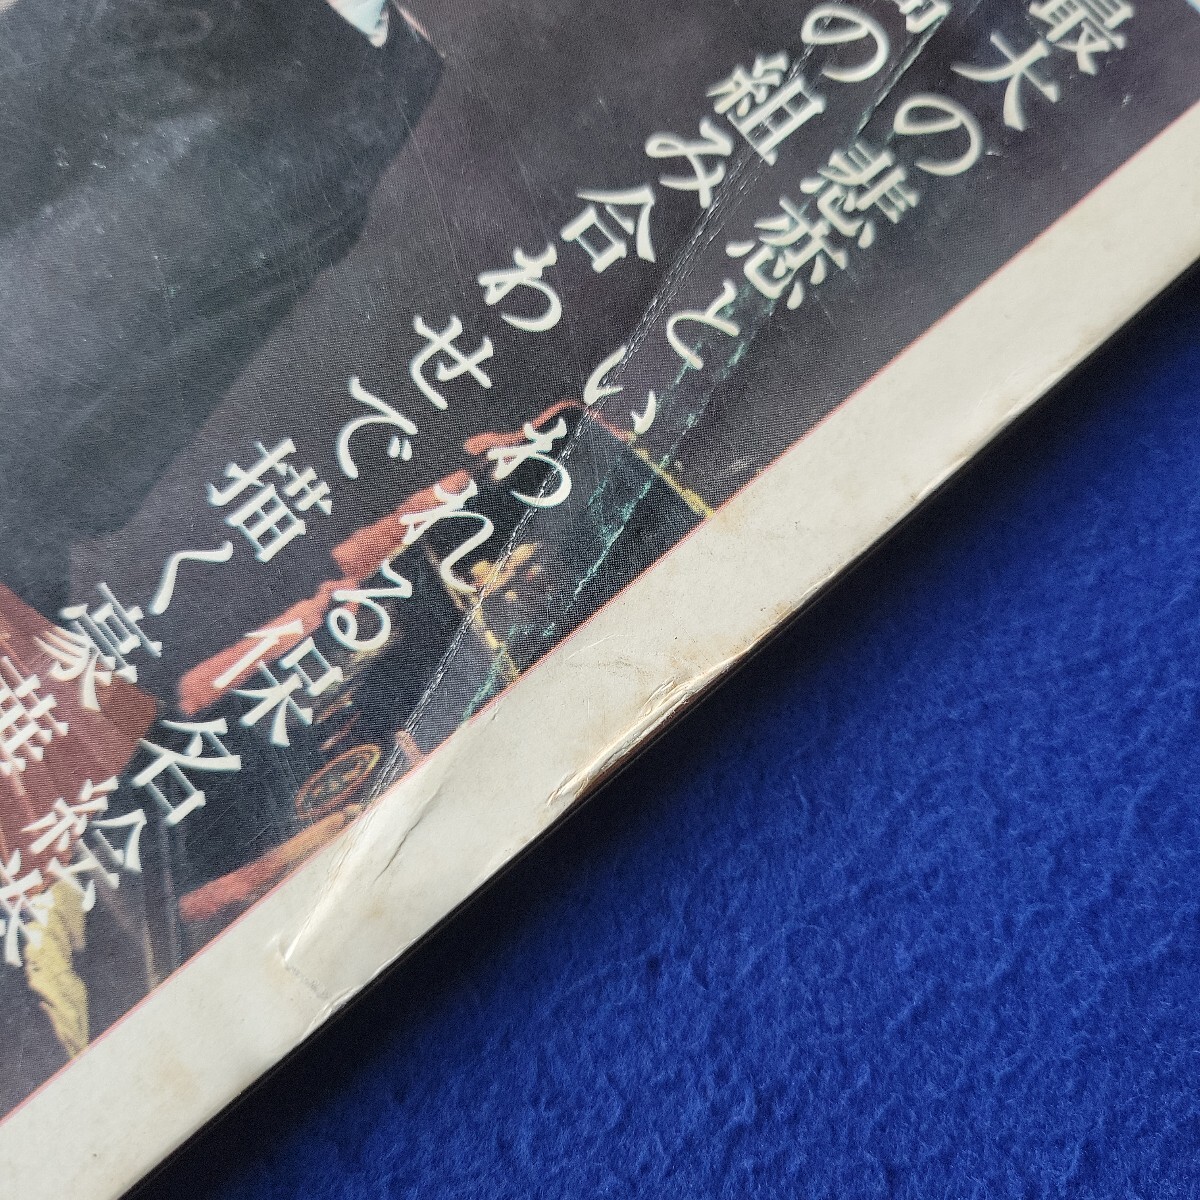 最大の悲恋といわれる保名絵
の組み合わせで描く豪華